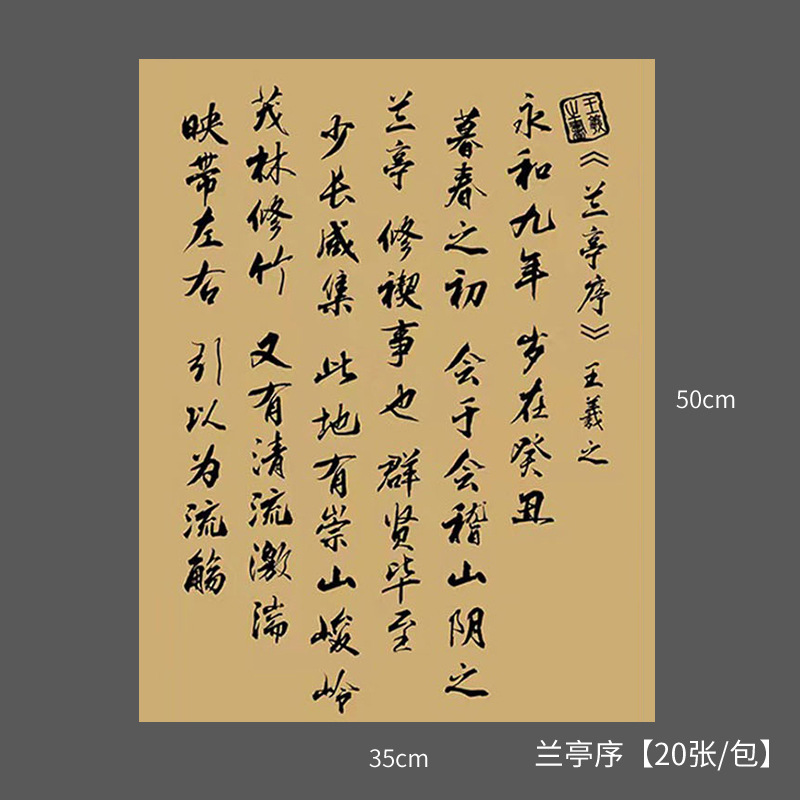 《兰亭序》王羲之
永和九年 岁在癸丑
暮春之初 会于会稽山阴之
兰亭 修禊事也 群贤毕至
少长咸集 此地有崇山峻岭
茂林修竹 又有清流激湍
映带左右 引以为流觞
王羲之书
50cm
35cm
兰亭序【20张/包】